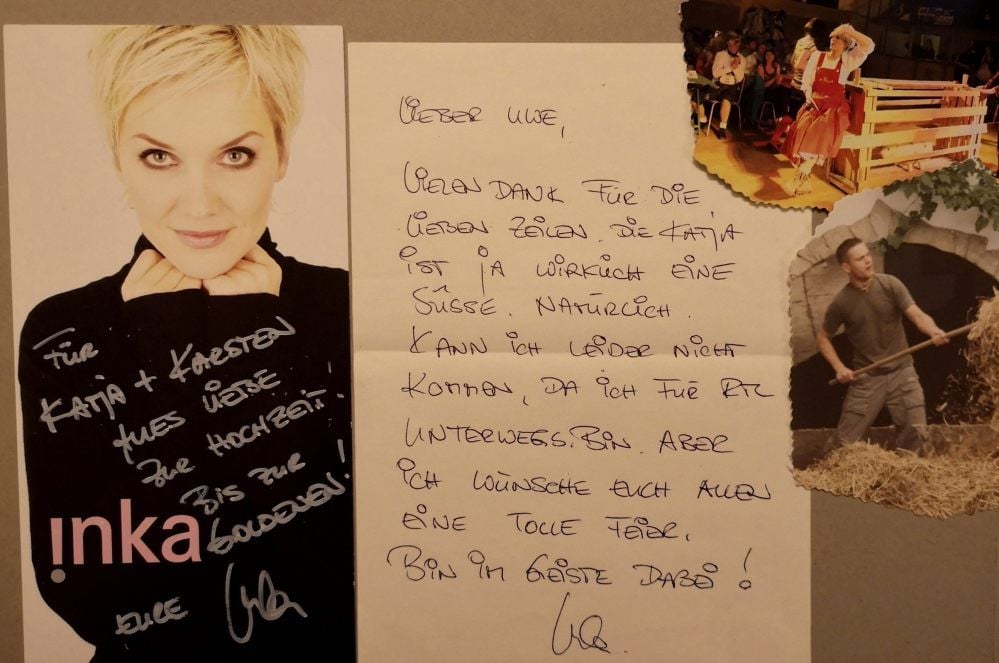 FÜR
KATJA + KARSTEN
ALLES LIEBE
ZUR HOCHZEIT!
BIS ZUR
GOLDENEN!
inka
EURE Inka
LIEBER UWE,
VIELEN DANK FÜR DIE
LIEBEN ZEILEN. DIE KATJA
IST JA WIRKLICH EINE
SÜSSE. NATÜRLICH
KANN ICH LEIDER NICHT
KOMMEN, DA ICH FÜR RTL
UNTERWEGS BIN. ABER
ICH WÜNSCHE EUCH ALLEN
EINE TOLLE FEIER.
BIN IM GEISTE DABEI!
Inka